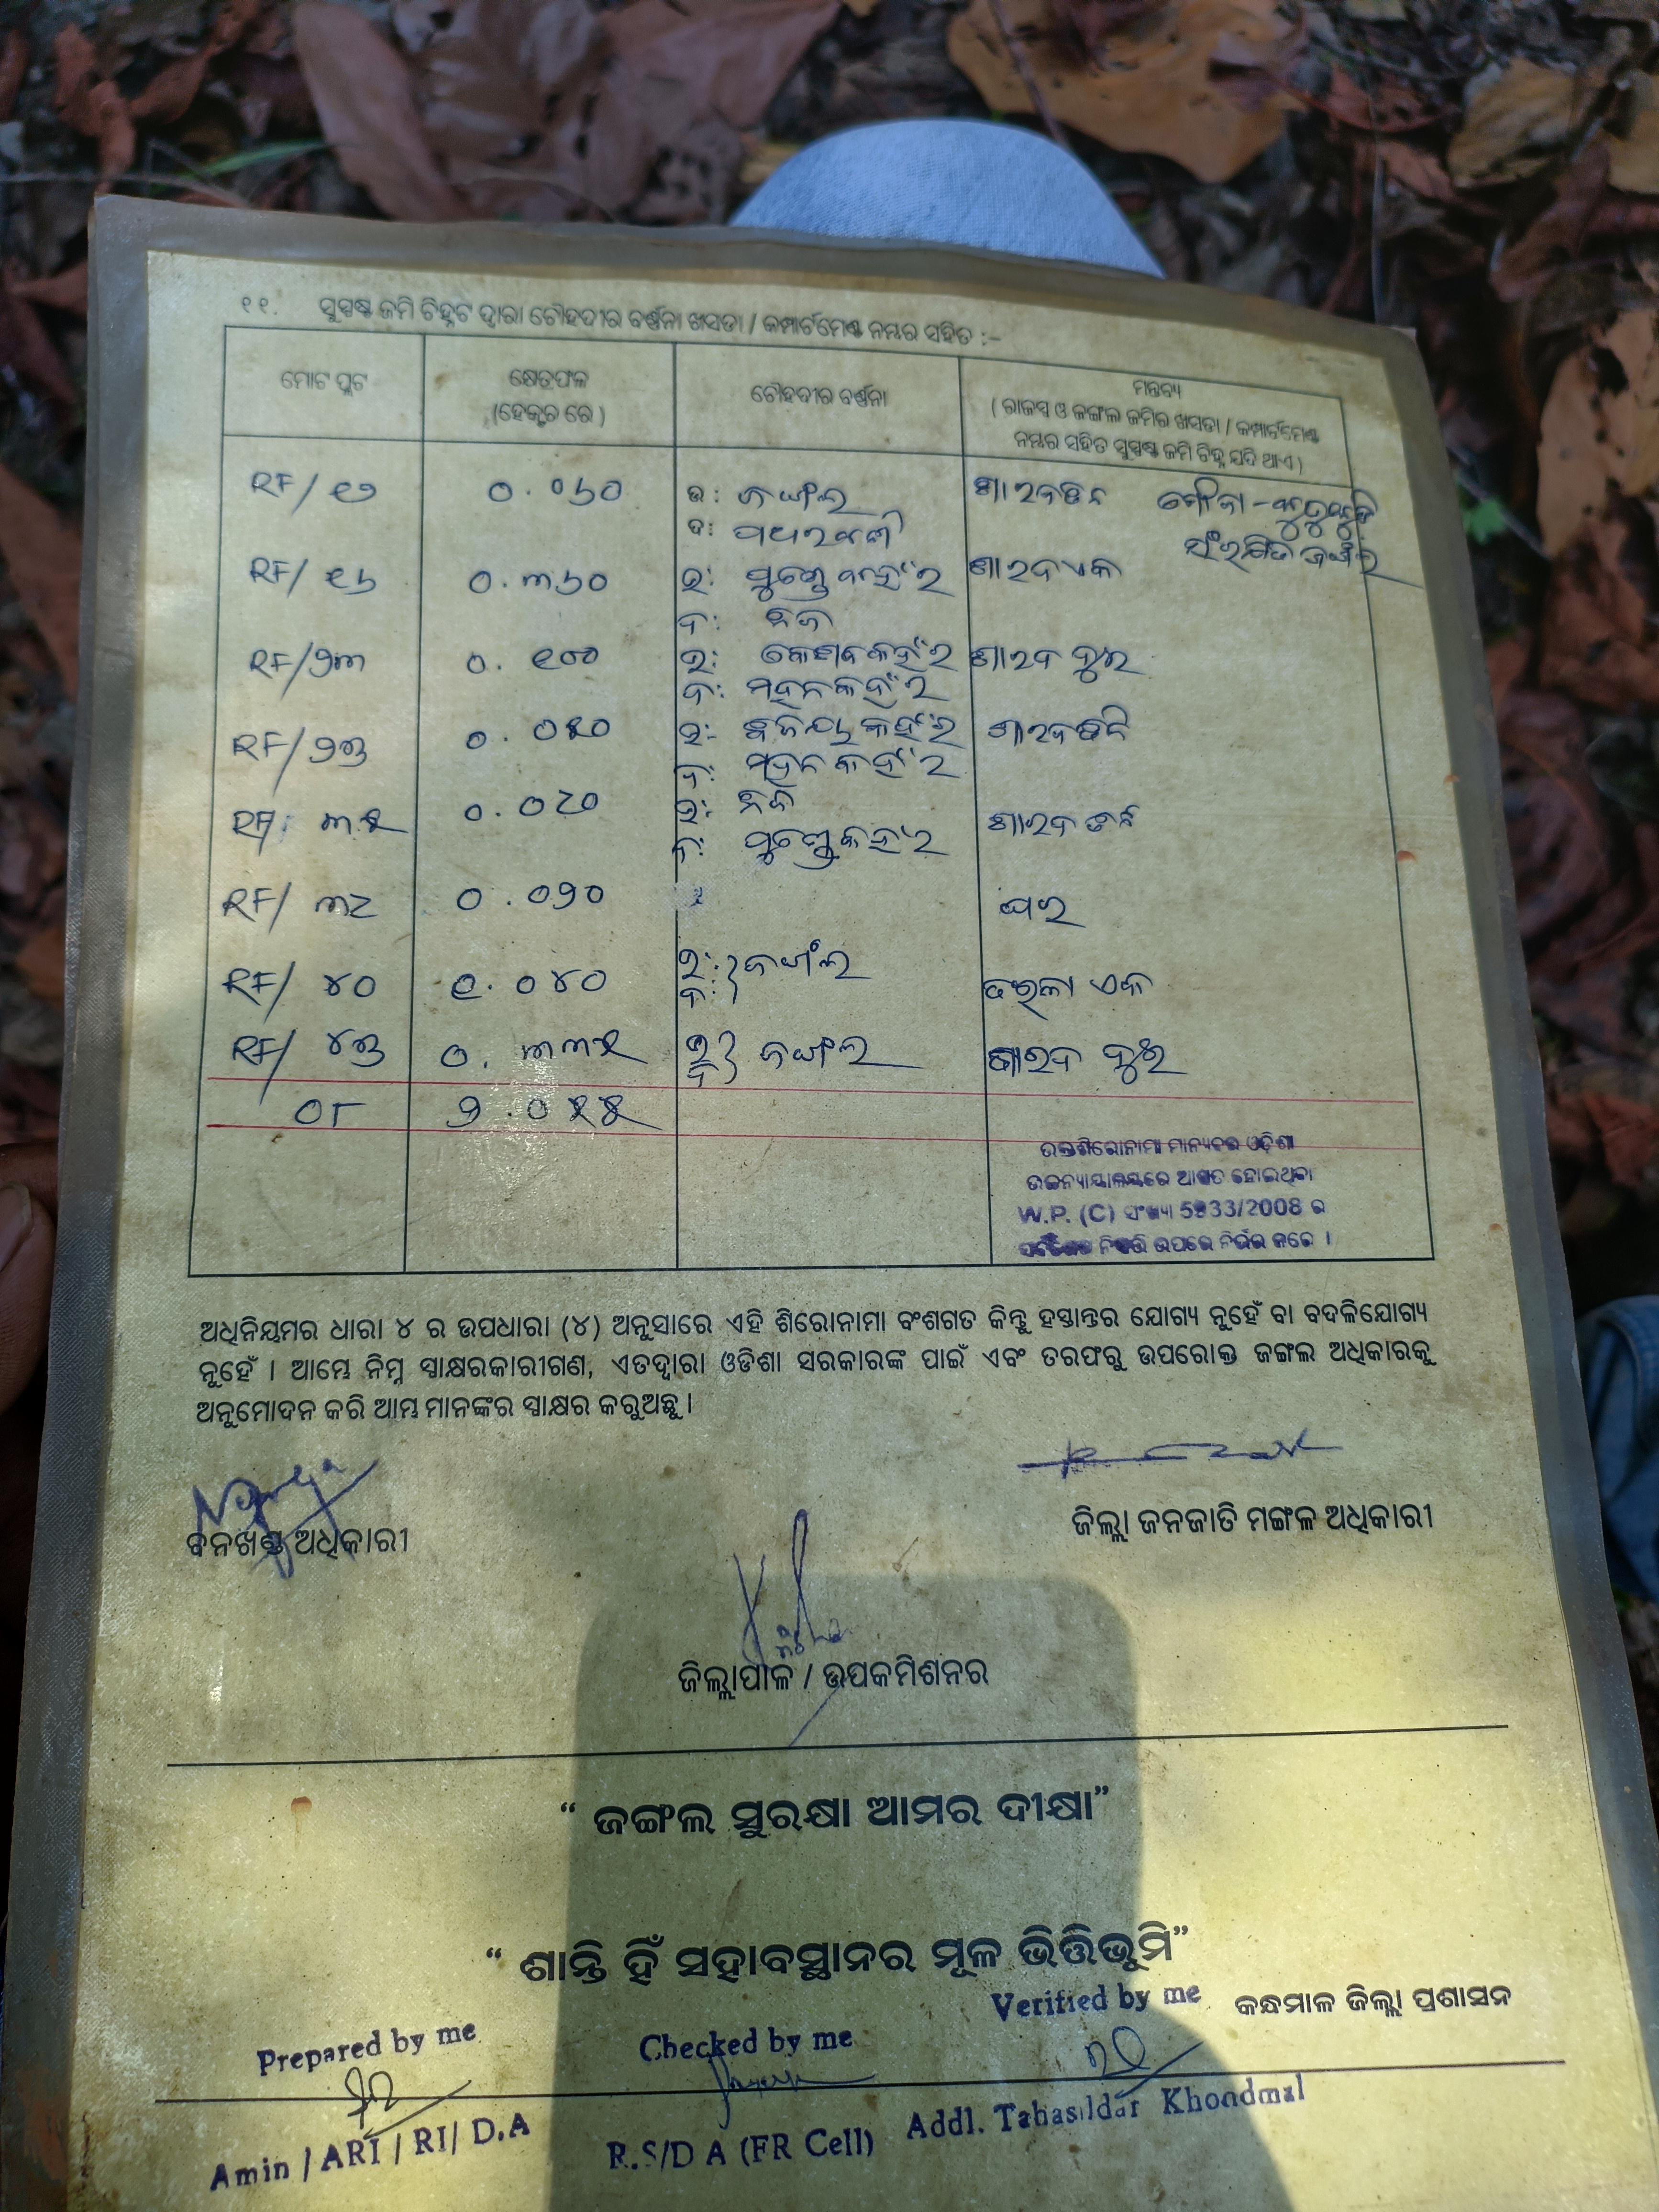 ୧୧. ସୁସ୍ପଷ୍ଟ ଜମି ଚିହ୍ନଟ ଦ୍ୱାରା ଚୌହଦୀର ବର୍ଣ୍ଣନା ଖସଡା / କମ୍ପାର୍ଟମେଣ୍ଟ ନମ୍ବର ସହିତ :-
ମୋଟ ପ୍ଲଟ
କ୍ଷେତ୍ରଫଳ
(ହେକ୍ଟର ରେ)
ଚୌହଦୀର ବର୍ଣ୍ଣନା
ମନ୍ତବ୍ୟ
( ରାଜସ୍ୱ ଓ ଜଙ୍ଗଲ ଜମିର ଖସଡା / କମ୍ପାର୍ଟମେଣ୍ଟ
ନମ୍ବର ସହିତ ସୁସ୍ପଷ୍ଟ ଜମି ଚିହ୍ନ ଯଦି ଥାଏ )
RF/ ୧୭ ୦.୦୬୦ ଉ: ଜଙ୍ଗଲ ଶାରଦ ମୌଜା -
ଦ: ସଂରକ୍ଷିତ ଜଙ୍ଗଲ
RF/ ୧୬ ୦.୩୬୦ ଉ: କହଁର ଶାରଦ ଏକ
ଦ: ନିଜ
RF/ ୨୩ ୦.୧୦୦ ଉ: କେଶବ କହଁର ଶାରଦ ଦୁଇ
ଦ: ମହନ କହଁର
RF/ ୨୭ ୦.୦୫୦ ଉ: କହଁର ଶାରଦ ତିନି
ଦ: ମହନ କହଁର
RF/ ୩୫ ୦.୦୮୦ ଉ: ନିଜ ଶାରଦ ତିନି
ଦ: କହଁର
RF/ ୩୮ ୦.୦୨୦ ଘର
RF/ ୪୦ ୧.୦୪୦ ଉ: ଦ: ଜଙ୍ଗଲ ଏକ
RF/ ୪୭ ୦.୩୩୫ ଉ ଦ ଜଙ୍ଗଲ ଶାରଦ ଦୁଇ
୦୮ ୨.୦୫୫
ଉକ୍ତ ଶିରୋନାମା ମାନ୍ୟବର ଓଡ଼ିଶା
ଉଚ୍ଚନ୍ୟାୟାଳୟରେ ଆଗତ ହୋଇଥିବା
W.P. (C) ସଂଖ୍ୟା 5933/2008 ର
ଉପରେ ନିର୍ଭର କରେ ।
ଅଧିନିୟମର ଧାରା ୪ ର ଉପଧାରା (୪) ଅନୁସାରେ ଏହି ଶିରୋନାମା ବଂଶଗତ କିନ୍ତୁ ହସ୍ତାନ୍ତର ଯୋଗ୍ୟ ନୁହେଁ ବା ବଦଳିଯୋଗ୍ୟ
ନୁହେଁ । ଆମ୍ଭେ ନିମ୍ନ ସ୍ୱାକ୍ଷରକାରୀଗଣ, ଏତଦ୍ୱାରା ଓଡିଶା ସରକାରଙ୍କ ପାଇଁ ଏବଂ ତରଫରୁ ଉପରୋକ୍ତ ଜଙ୍ଗଲ ଅଧିକାରକୁ
ଅନୁମୋଦନ କରି ଆମ୍ଭ ମାନଙ୍କର ସ୍ୱାକ୍ଷର କରୁଅଛୁ ।
ବନଖଣ୍ଡ ଅଧିକାରୀ
ଜିଲ୍ଲା ଜନଜାତି ମଙ୍ଗଳ ଅଧିକାରୀ
ଜିଲ୍ଲାପାଳ / ଉପକମିଶନର
“ ଜଙ୍ଗଲ ସୁରକ୍ଷା ଆମର ଦୀକ୍ଷା”
“ ଶାନ୍ତି ହିଁ ସହାବସ୍ଥାନର ମୂଳ ଭିତ୍ତିଭୂମି”
କନ୍ଧମାଳ ଜିଲ୍ଲା ପ୍ରଶାସନ
Prepared by me Checked by me Verified by me
Amin / ARI / RI/ D.A R.S/D A (FR Cell) Addl. Tahasildar Khondmal